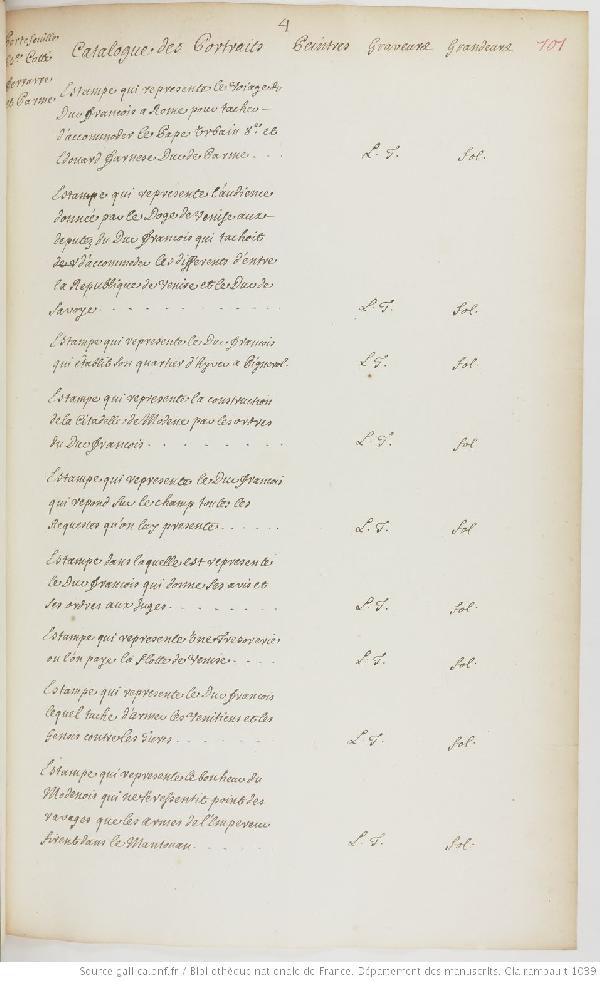 4
Portefeuille Catalogue des Portraits Peintres Graveurs Grandeurs 101
Ferrare
et Parme
Estampe qui represente le Voiage du
Duc francois a Rome pour tacher
d'accommoder le Pape Urbain 8.e et
Edouard Farnese Duc de Parme . . . L. T. fol.
Estampe qui represente l'audience
donnée par le Doge de Venise aux
deputez du Duc francois qui tachoit
d'accommoder les differents d'entre
la Republique de Venise et le Duc de
Savoye . . . . . . . . L. T. fol.
Estampe qui represente le Duc francois
qui établit son quartier d'hyver a Pignerol. L. T. fol.
Estampe qui represente la construction
de la Citadelle de Modene par les ordres
du Duc francois . . . . . . L. T. fol
Estampe qui represente le Duc francois
qui repond sur le champ toutes les
Requestes qu'on luy presente . . . . . L. T. fol
Estampe dans laquelle est represente
le Duc francois qui donne ses avis et
ses ordres aux Juges . . . . . . L. T. fol.
Estampe qui represente une Tresorerie
ou l'on paye la flotte de Venise . . . . L. T. fol.
Estampe qui represente le Duc francois
lequel tache d'armer les Venitiens et les
Genois contre les Turcs . . . . . . L. T. fol.
Estampe qui represente le bonheur du
Modenois qui ne se ressentit point des
ravages que les armes de l'Empereur
firent dans le Mantouan . . . . . L. T. fol.
Source gallica.bnf.fr / Bibliothèque nationale de France. Département des manuscrits. Clairambault 1039